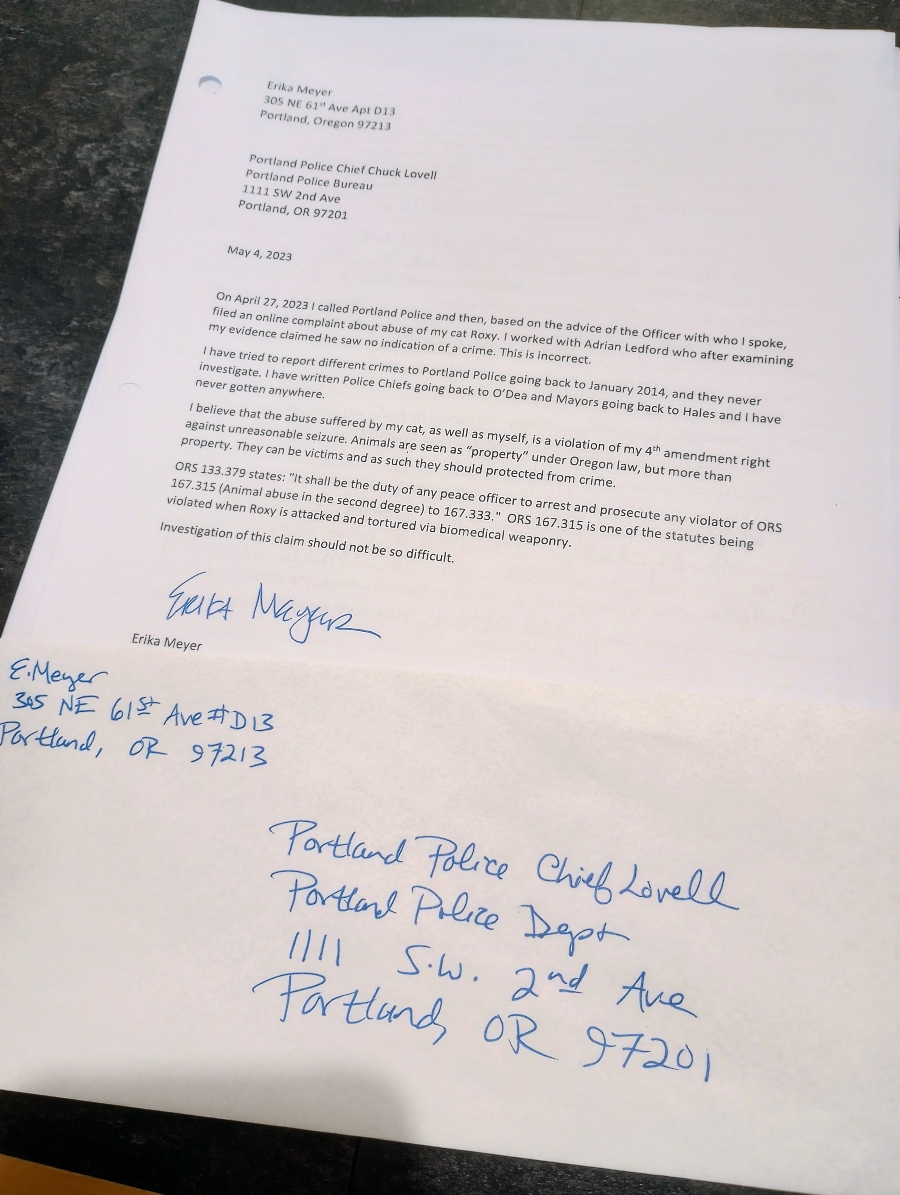 Erika Meyer
305 NE 61st Ave Apt D13
Portland, Oregon 97213
Portland Police Chief Chuck Lovell
Portland Police Bureau
1111 SW 2nd Ave
Portland, OR 97201
May 4, 2023
On April 27, 2023 I called Portland Police and then, based on the advice of the Officer with who I spoke,
filed an online complaint about abuse of my cat Roxy. I worked with Adrian Ledford who after examining
my evidence claimed he saw no indication of a crime. This is incorrect.
I have tried to report different crimes to Portland Police going back to January 2014, and they never
investigate. I have written Police Chiefs going back to O'Dea and Mayors going back to Hales and I have
never gotten anywhere.
I believe that the abuse suffered by my cat, as well as myself, is a violation of my 4th amendment right
against unreasonable seizure. Animals are seen as "property" under Oregon law, but more than
property. They can be victims and as such they should protected from crime.
ORS 133.379 states: "It shall be the duty of any peace officer to arrest and prosecute any violator of ORS
167.315 (Animal abuse in the second degree) to 167.333." ORS 167.315 is one of the statutes being
violated when Roxy is attacked and tortured via biomedical weaponry.
Investigation of this claim should not be so difficult.
Erika Meyer
Erika Meyer
E. Meyer
305 NE 61st Ave #D13
Portland, OR 97213
Portland Police Chief Lovell
Portland Police Dept
1111 S.W. 2nd Ave
Portland, OR 97201